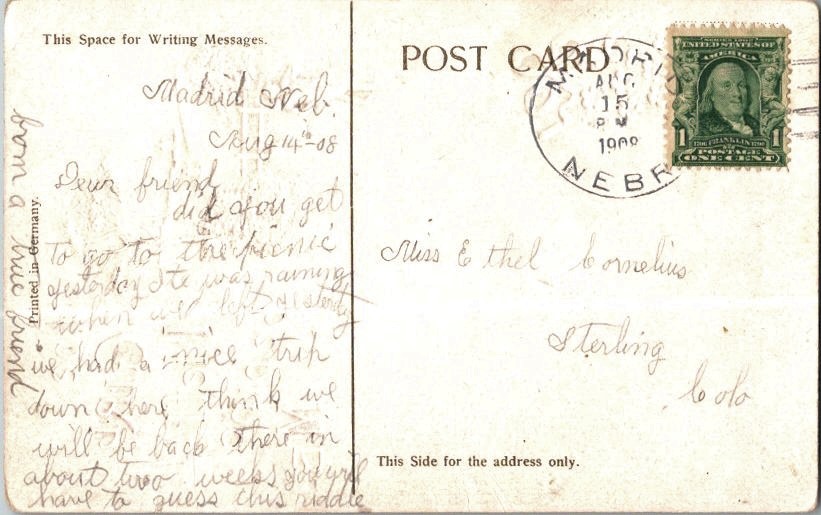 This Space for Writing Messages.
Madrid Neb.
Aug 14th-08
Dear friend
did you get
to go to the picnic
yesterday Ite was raining
when we left yesterdy
we had a nice trip
down here think we
will be back there in
about two weeks you will
have to guess this riddle
from a true friend
Printed in Germany.
POST CARD
MADRID
AUG
15
P M
1908
NEBR
SERIES 1902
UNITED STATES OF
AMERICA
1706 FRANKLIN 1790
1 POSTAGE 1
ONE CENT
Miss Ethel Cornelius
Sterling
Colo
This Side for the address only.